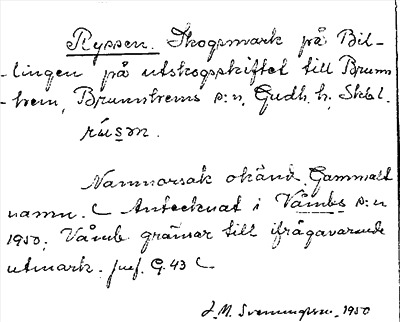 Ryssen. Skogsmark på Bil-
-lingen på utskogsskiftet till Brunn-
-hem, Brunnhems s:n, Gudh. h., Skbl.
rúsøn.
Namnorsak okänd. Gammalt
namn. ( Antecknat i Våmbs s:n
1950. Våmb gränsar till ifrågavarande
utmark. jmf. G. 43 (
J. M. Svenungsson 1950